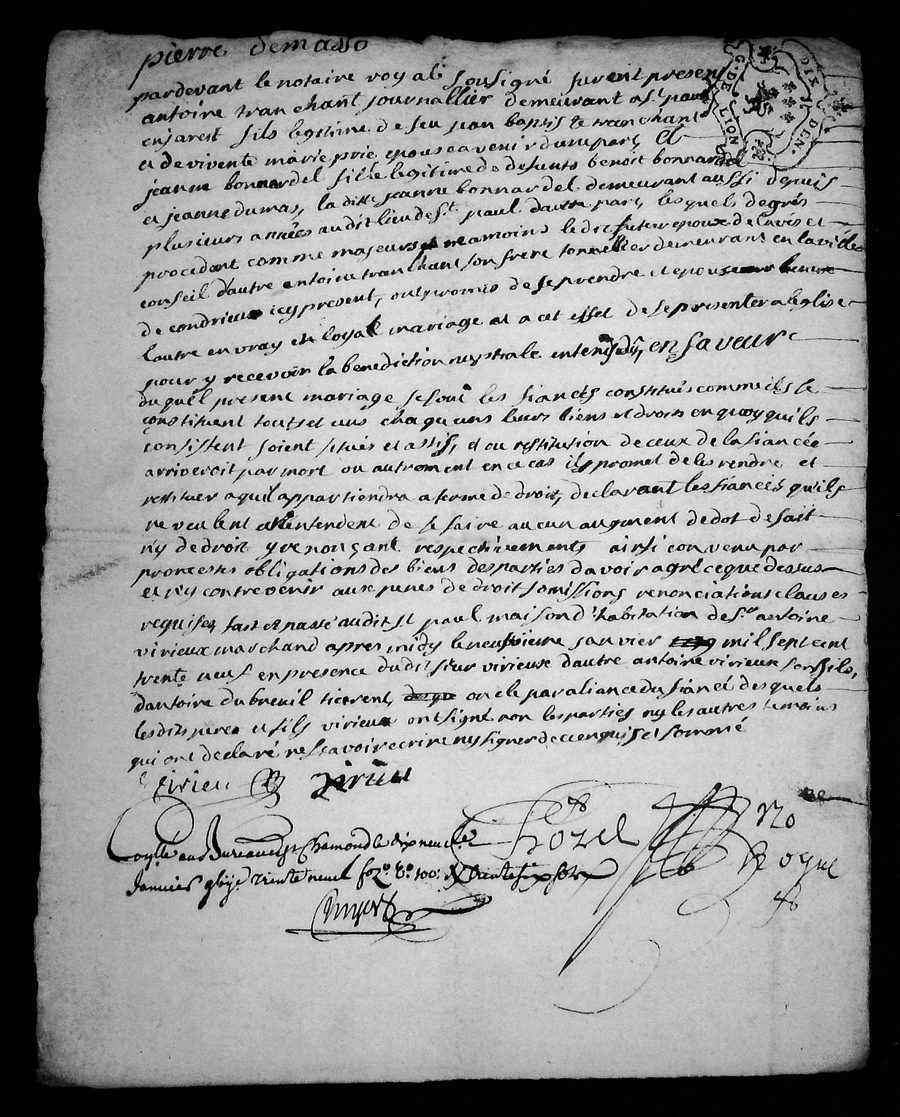 pierre demasso
pardevant le notaire royal sousigné furent presens
antoine tranchant journallier demeurant a st paul
en jarest fils legitime de feu jean baptiste tranchant
et de vivente marie prie epouse a venir d'une part, et
jeanne bonnardel fille legitime de defunts benoit bonnardel
et jeanne dumas, la ditte jeanne bonnardel demeurant aussi depuis
plusieurs années audit lieu de st paul d'autre part, lesquels de grés
procedant comme majeurs neamoins le dit futur epoux de l'avis et
conseil d'autre antoine tranchant son frere tonnellier demeurant en la ville
de condrieux icy present, ont promis de se prendre et epouser
l'autre en vray et loyal mariage et a cet effet de se presenter a l'eglise
pour y recevoir la benediction nuptiale en faveur
duquel present mariage se sont les fiancés constitués comme ils se
constituent touts et uns chaquuns leurs biens et droits en quoy qu'ils
consistent soient situés et assis, et ou restitution de ceux de la fiancée
arriveroit par mort ou autrement en ce cas il promet de les rendre et
restituer a qui il appartiendra a forme de droit, declarant les fiancés qu'ils
ne veulent n'y entendent de se faire aucun augment de dot de fait
n'y de droit y renonçant respectivements ainsi convenu par
promesses obligations des biens des parties d'avoir agré ce que dessus
et n'y contrevenir aux peines de droit somissions renonciations clauses
requises fait et passé audit st paul maison d'habitation de sr antoine
virieux marchand apres midy le neufvieme janvier mil sept cent
trente neuf en presence dudit sieur virieux d'autre antoine virieux son fils,
d'antoine dubreuil oncle par aliance du fiancé desquels
lesdits pere et fils virieux ont signé non les parties ny les autres temoins
qui ont declaré ne scavoir ecrire ny signer de ce enquis et sommé
virieu virieu
Chozel
no
Royal
au Bureau de st Chamond le dix neuf
Janvier trente neuf
G. DE LION
DEN.